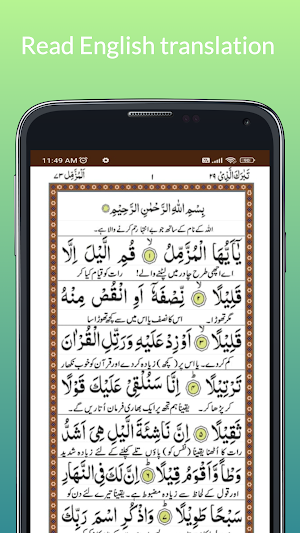 Read English translation
11:49 AM
اَلْمُزَّمِّل ٧٣
١
تَبٰرَكَ الَّذِیْ ٢٩
بِسْمِ اللّٰهِ الرَّحْمٰنِ الرَّحِیْمِ
اللہ کے نام کے ساتھ جو بے انتہا رحم کرنے والا ہے۔
یٰۤاَیُّهَا الْمُزَّمِّلُ ۙ﴿۱﴾ قُمِ الَّیْلَ اِلَّا
اے اچھی طرح چادر میں لپٹنے والے! رات کو قیام کیا کر
قَلِیْلًا ۙ﴿۲﴾ نِّصْفَهٗۤ اَوِ انْقُصْ مِنْهُ
مگر تھوڑا سا۔ اس کا نصف یا اس میں سے کچھ تھوڑا سا
قَلِیْلًا ۙ﴿۳﴾ اَوْ زِدْ عَلَیْهِ وَرَتِّلِ الْقُرْاٰنَ
کم کر دے۔ یا اس پر (کچھ) زیادہ کر دے اور قرآن کو خوب نکھار
تَرْتِیْلًا ؕ﴿۴﴾ اِنَّا سَنُلْقِیْ عَلَیْكَ قَوْلًا
کر پڑھا کر۔ یقیناً ہم تجھ پر ایک بھاری فرمان اُتاریں گے۔
ثَقِیْلًا ﴿۵﴾ اِنَّ نَاشِئَةَ الَّیْلِ هِیَ اَشَدُّ
رات کا اُٹھنا یقیناً زیادہ شدید
وَطْاً وَّاَقْوَمُ قِیْلًا ؕ﴿۶﴾ اِنَّ لَكَ فِی النَّهَارِ
اور قول کے لحاظ سے زیادہ مضبوط ہے۔ یقیناً تیرے لئے دن کو
سَبْحًا طَوِیْلًا ؕ﴿۷﴾ وَاذْكُرِ اسْمَ رَبِّكَ